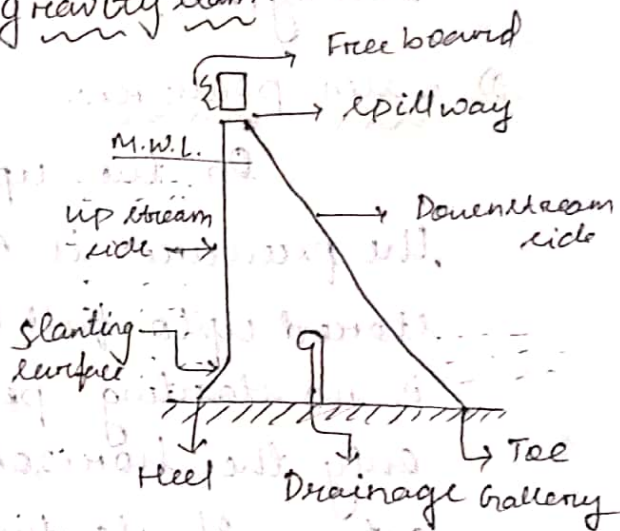 gravity dam
Free board
spillway
M.W.L.
up stream
side
Downstream
side
Slanting
surface
Heel
Toe
Drainage Gallery